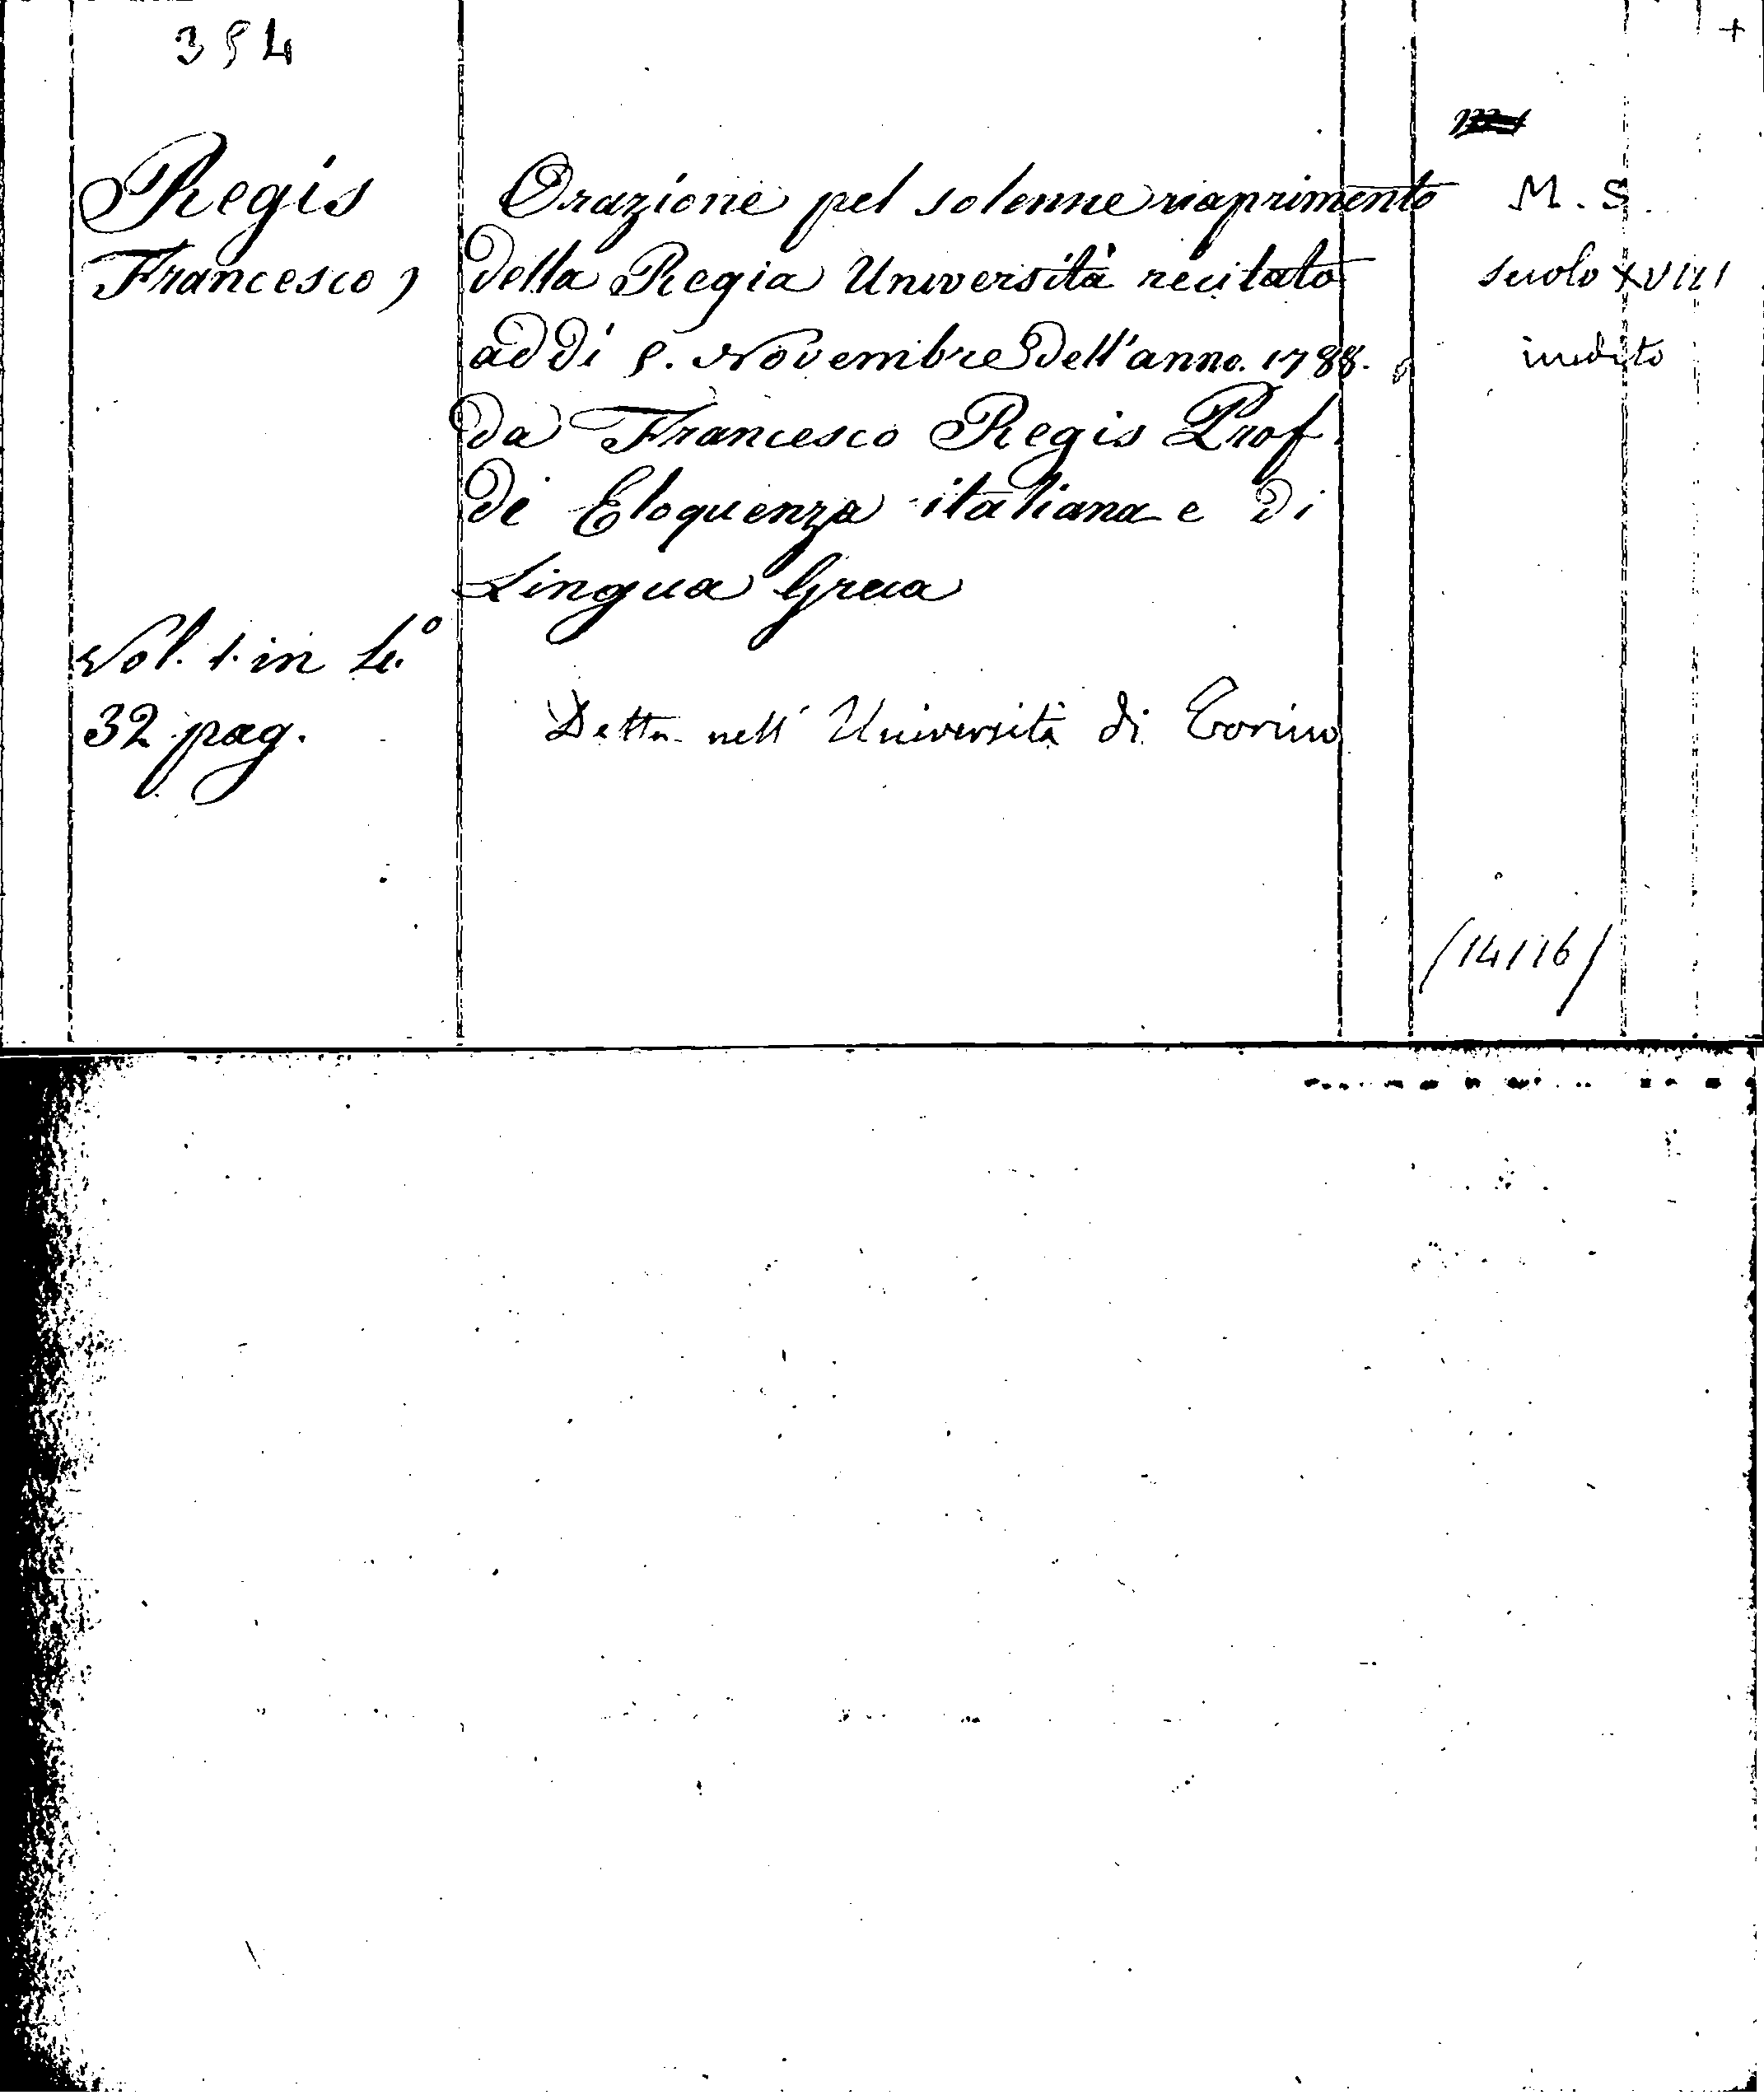 354
+
Regis
Francesco
Orazione pel solenne riaprimento
della Regia Università recitato
addi 5. Novembre dell'anno. 1788.
da Francesco Regis Prof.
di Eloquenza italiana e di
Lingua Greca
M. S.
secolo XVIII
inedito
Vol. 1. in 4.º
32 pag.
Detta nell' Università di Torino
/14116/